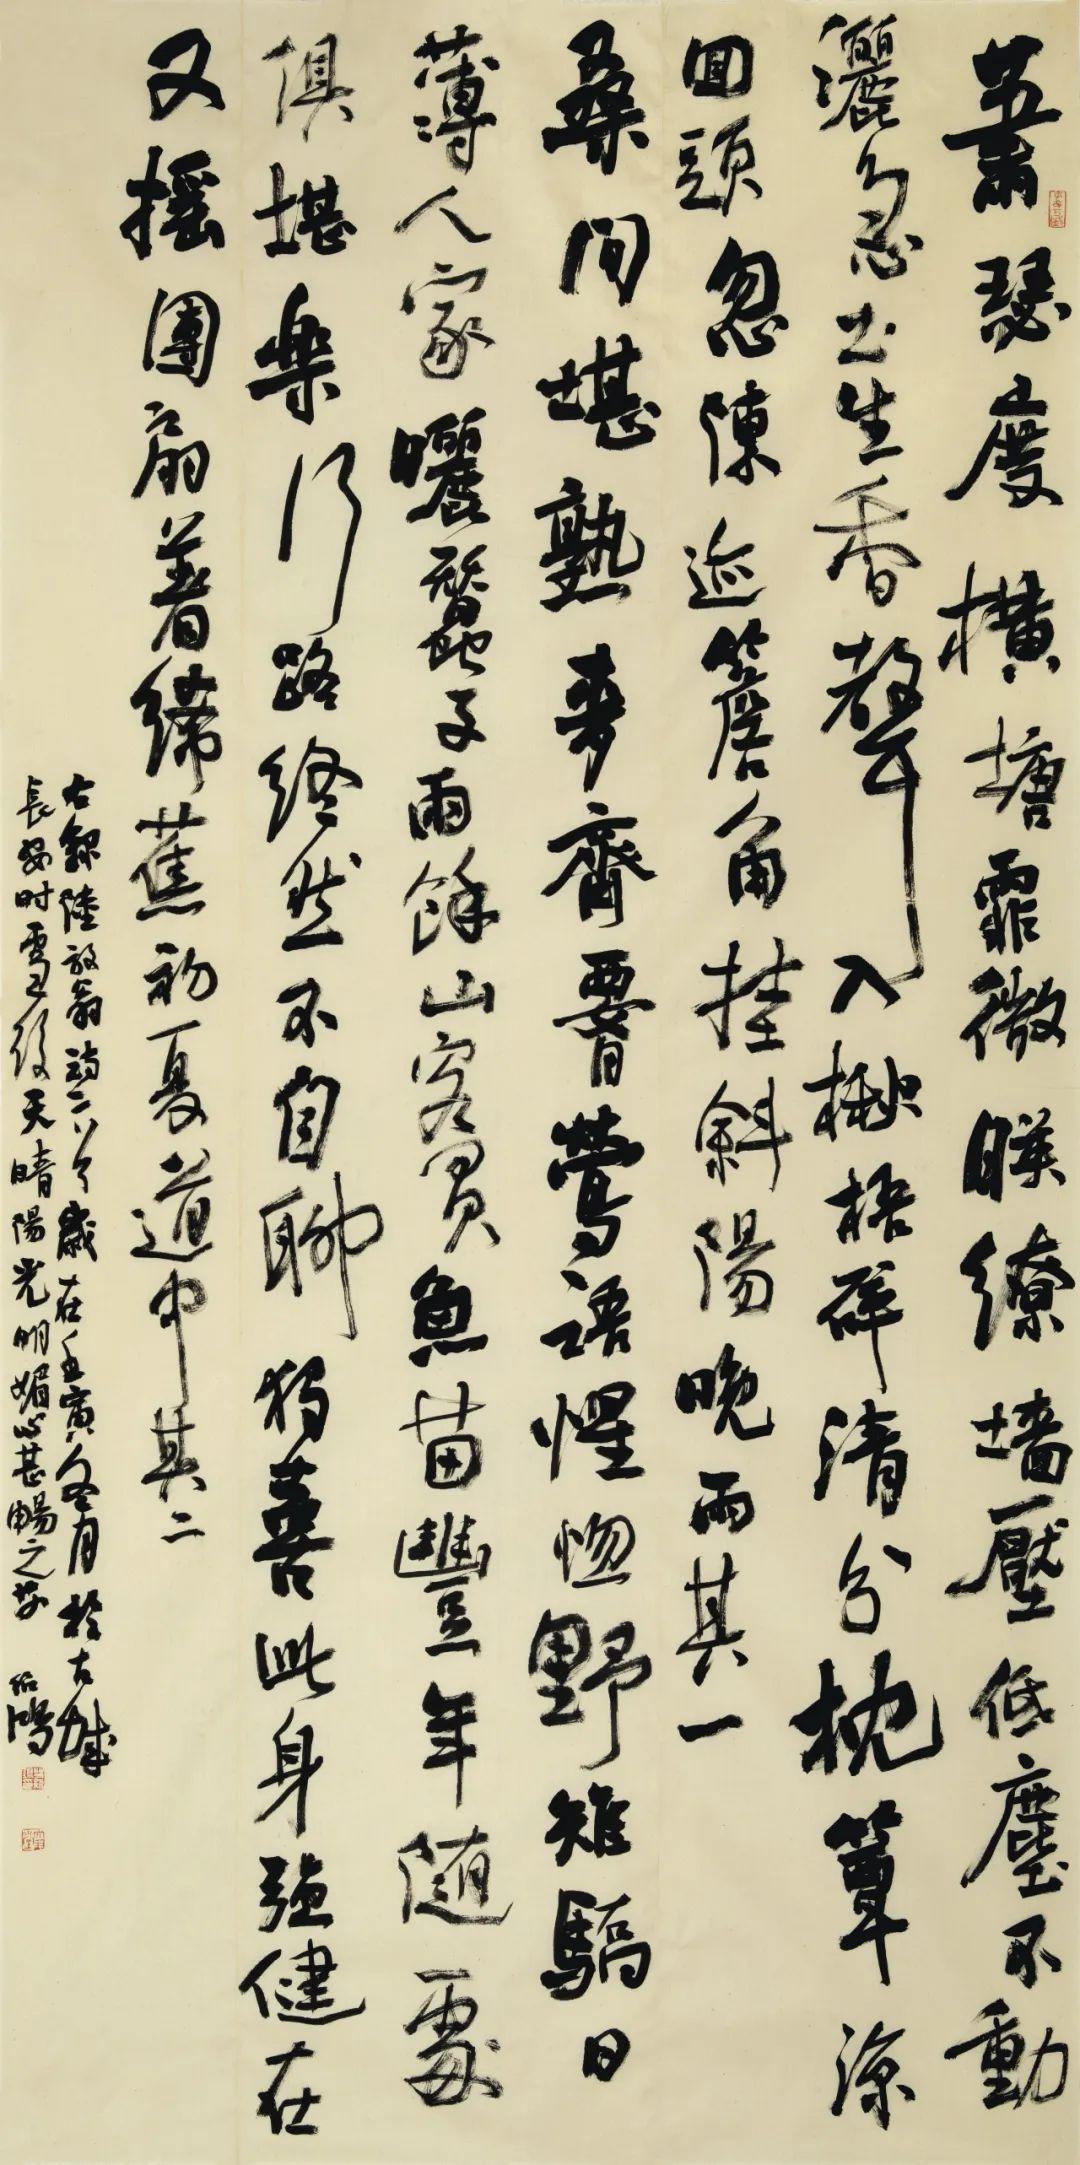 蕭瑟度橫塘霏微映繚墻壓低塵不動
灑急土生香聲入楸梧碎清分枕簟涼
回頭忽陳迹簷角挂斜陽晚雨其一
桑間椹熟麥齊要鶯語惺惚野雉驕日
薄人家曬蠶子雨餘山客買魚苗豐年隨處
俱堪樂行路終然不自聊獨喜此身強健在
又搖團扇着絺蕉初夏道中其二
右錄陸放翁詩二首歲在壬寅冬月於古城
長安時雪後天晴陽光明媚心甚暢之